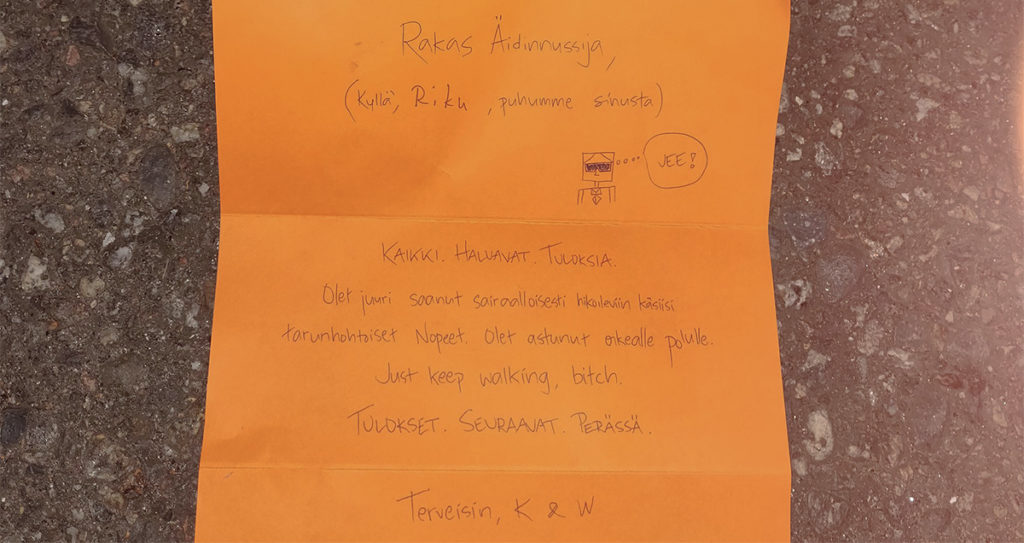 Rakas Äidinnussija,
(Kyllä, Riku, puhumme sinusta)
JEE!
KAIKKI. HALUAVAT. TULOKSIA.
Olet juuri saanut sairaalloisesti hikoileviin käsiisi
tarunhohtoiset Nopeet. Olet astunut oikealle polulle.
Just keep walking, bitch.
TULOKSET. SEURAAVAT. PERÄSSÄ.
Terveisin, K & W